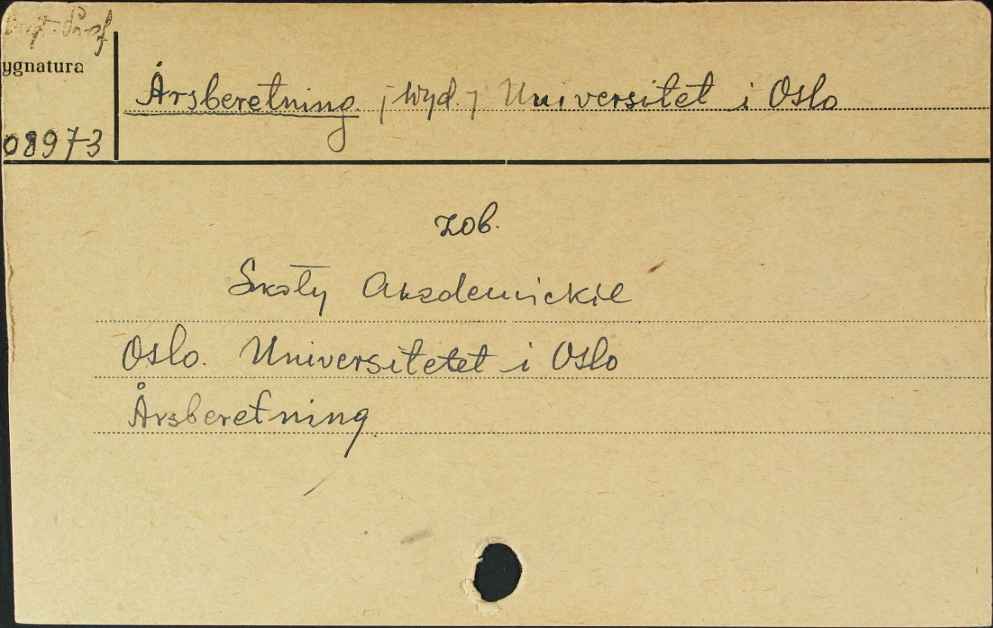 ygnatura
Årsberetning [wyd.] Universitet i Oslo
08973
zob.
Szkoły Akademickie
Oslo. Universitetet i Oslo
Årsberetning